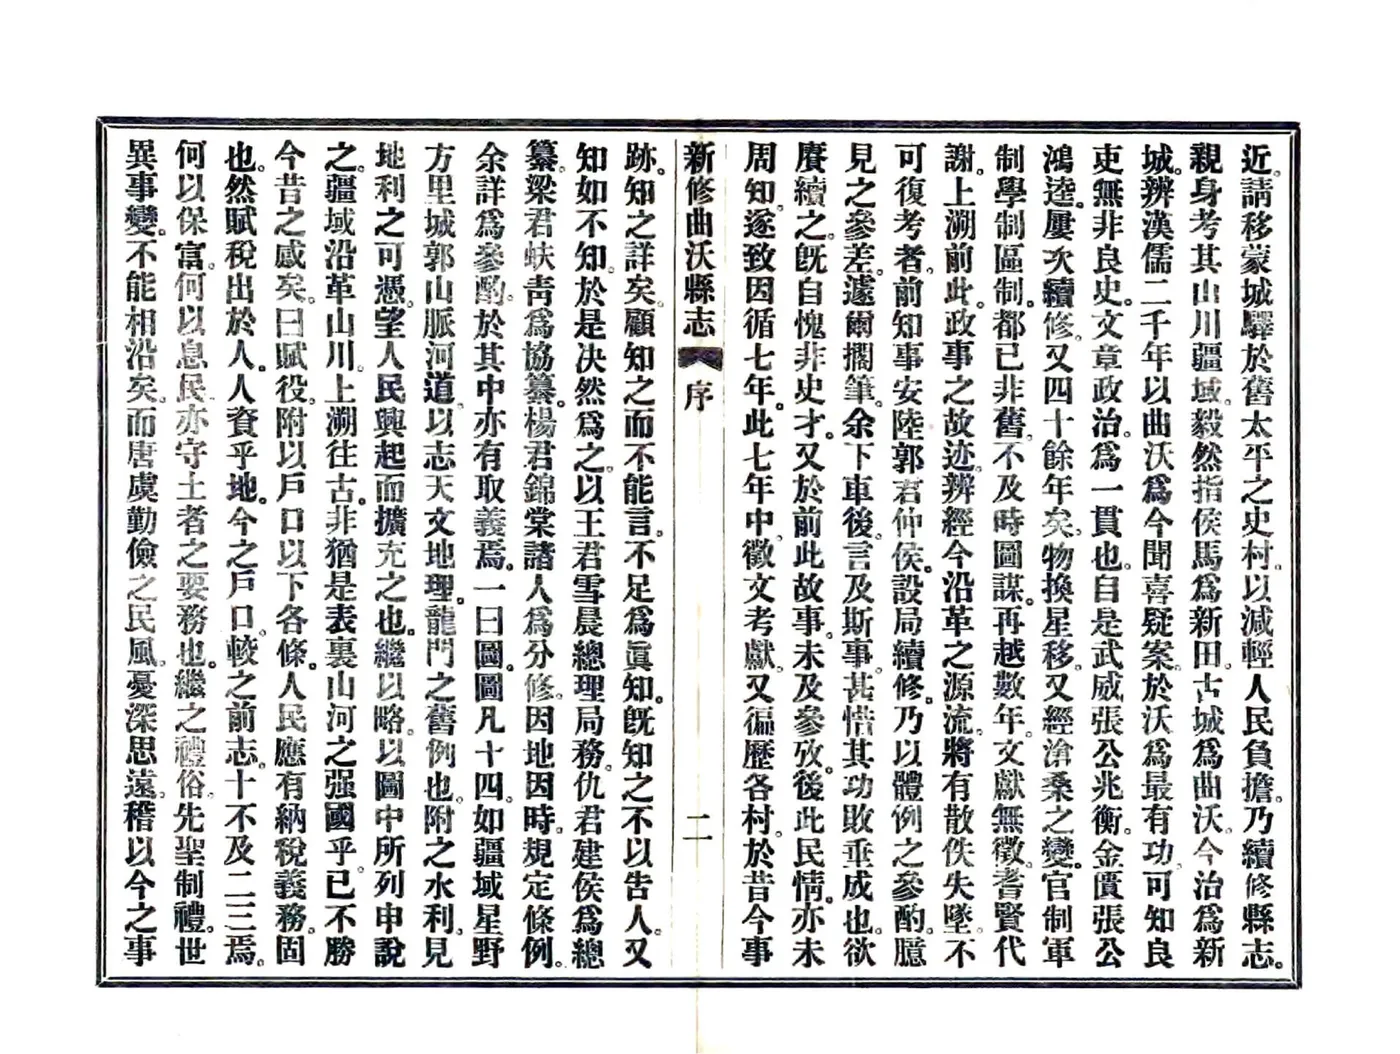 近。請移蒙城驛於舊太平之史村。以減輕人民負擔。乃續修縣志。
親身考其山川疆域。毅然指侯馬爲新田。古城爲曲沃。今治爲新
城。辨漢儒二千年以曲沃爲今聞喜疑案。於沃爲最有功。可知良
吏無非良史。文章政治。爲一貫也。自是武威張公兆衡。金匱張公
鴻逵。屢次續修。又四十餘年矣。物換星移。又經滄桑之變。官制軍
制學制區制。都已非舊。不及時圖謀。再越數年。文獻無徵。耆賢代
謝。上溯前此。政事之故迹。辨經今沿革之源流。將有散佚失墜。不
可復考者。前知事安陸郭君仲侯。設局續修。乃以體例之參酌。臆
見之參差。遽爾擱筆。余下車後。言及斯事。甚惜其功敗垂成也。欲
賡續之。旣自愧非史才。又於前此故事。未及參攷。後此民情。亦未
周知。遂致因循七年。此七年中。徵文考獻。又徧歷各村。於昔今事
新修曲沃縣志 序 二
跡。知之詳矣。顧知之而不能言。不足爲眞知。旣知之不以告人。又
知如不知。於是决然爲之。以王君雪晨總理局務。仇君建侯爲總
纂。梁君岐靑爲協纂。楊君錦棠諸人爲分修。因地因時。規定條例。
余詳爲參酌。於其中亦有取義焉。一曰圖。圖凡十四。如疆域星野
方里城郭山脈河道。以志天文地理。龍門之舊例也。附之水利。見
地利之可憑。望人民興起而擴充之也。繼以略。以圖中所列申說
之。疆域沿革山川。上溯往古。非猶是表裏山河之强國乎。已不勝
今昔之感矣。曰賦役。附以戶口以下各條。人民應有納稅義務。固
也。然賦稅出於人。人資乎地。今之戶口。較之前志。十不及二三焉。
何以保富。何以息民。亦守土者之要務也。繼之禮俗。先聖制禮。世
異事變。不能相沿矣。而唐虞勤儉之民風。憂深思遠。稽以今之事